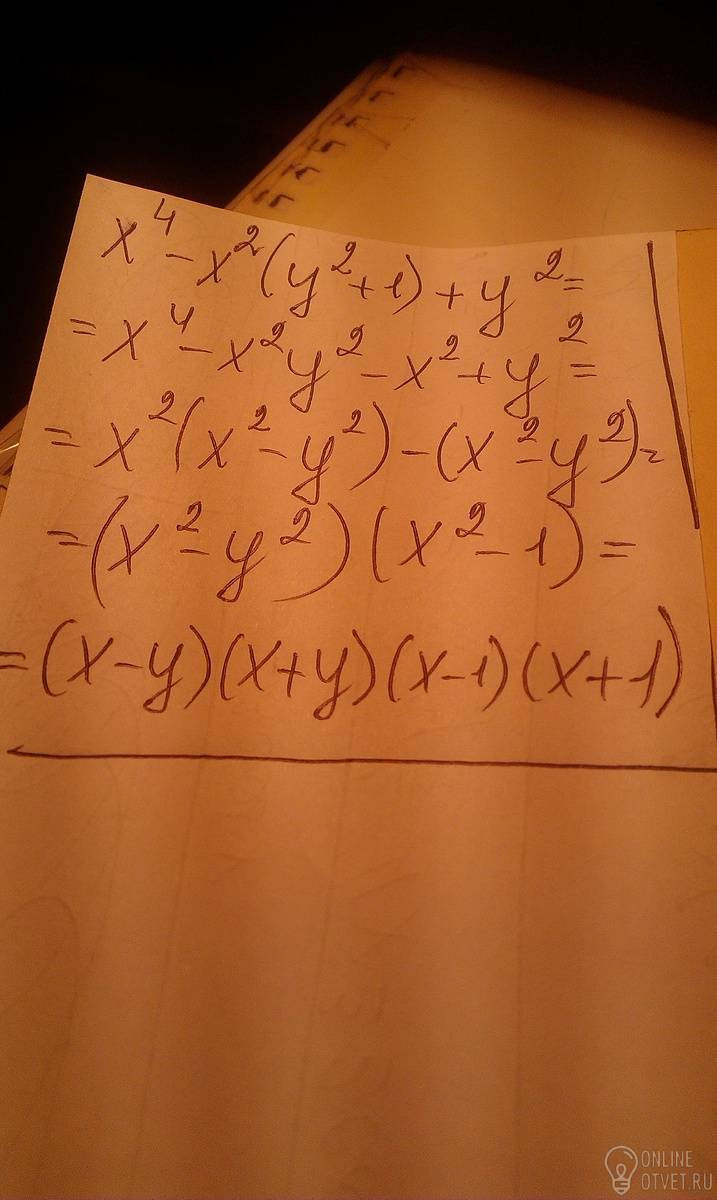 x⁴-x²(y²+1)+y²=
=x⁴-x²y²-x²+y²=
=x²(x²-y²)-(x²-y²)=
=(x²-y²)(x²-1)=
=(x-y)(x+y)(x-1)(x+1)
ONLINE
OTVET.RU